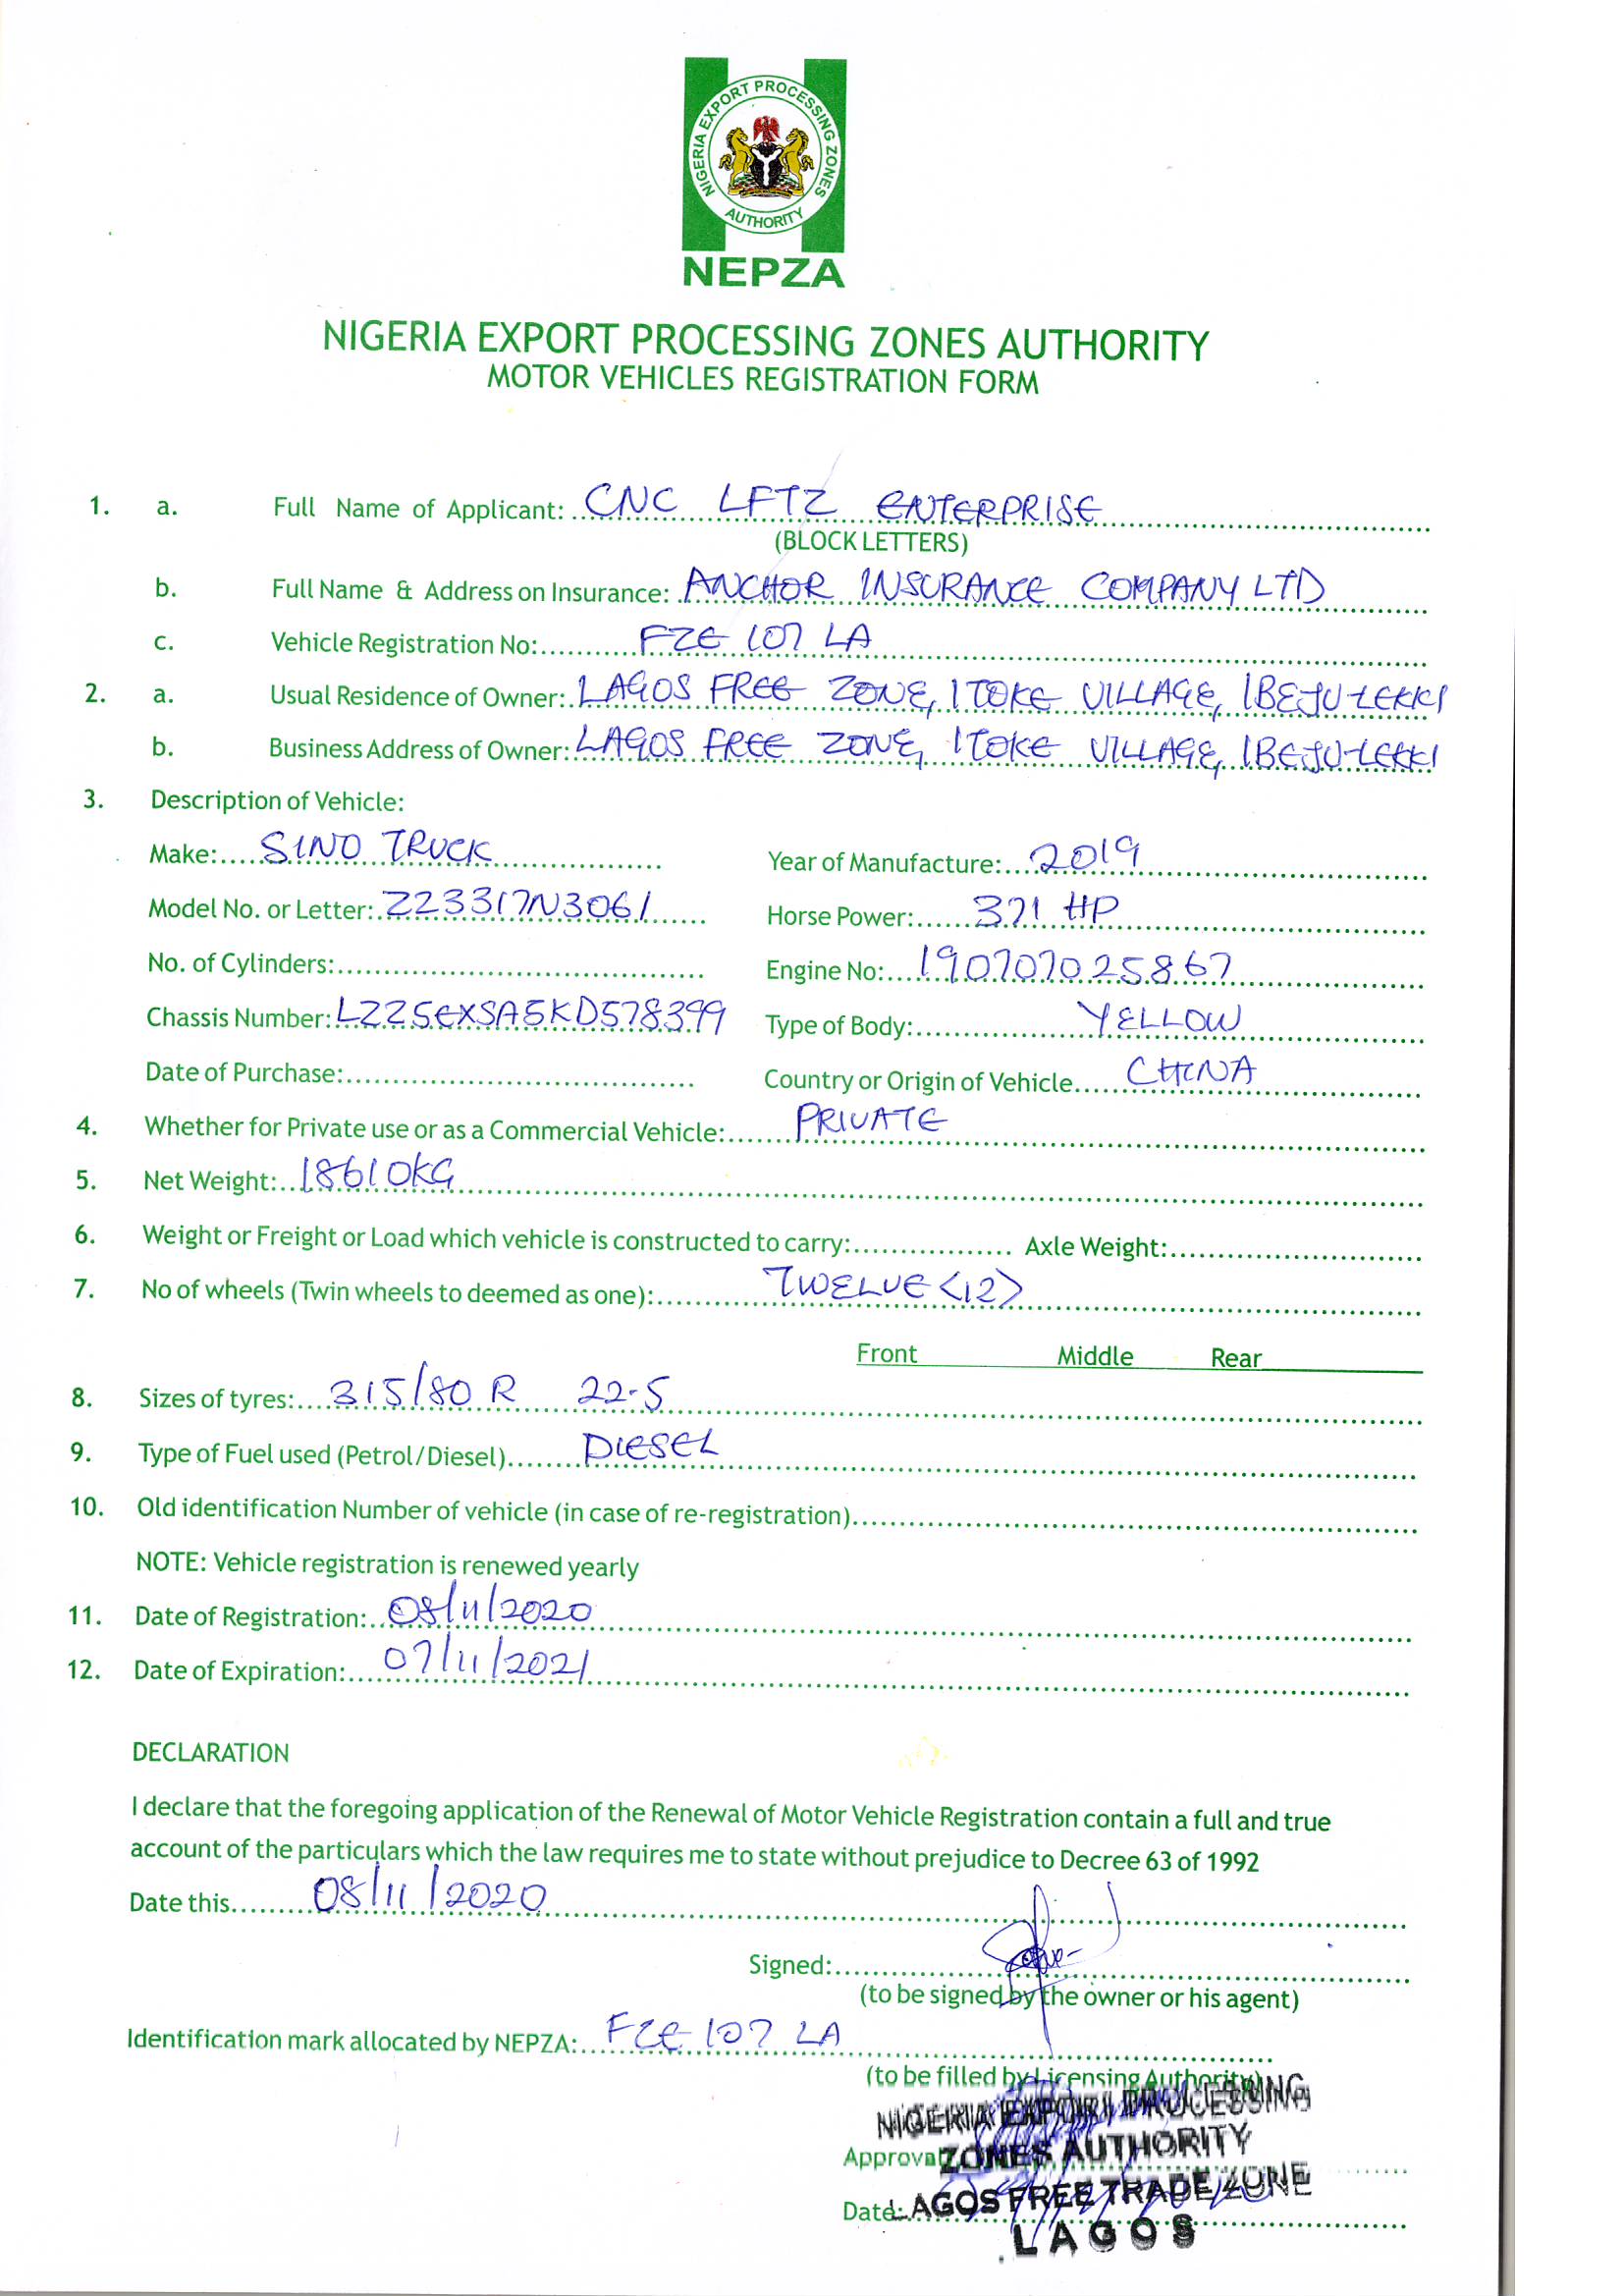 NIGERIA EXPORT PROCESSING ZONES
AUTHORITY
NEPZA
NIGERIA EXPORT PROCESSING ZONES AUTHORITY
MOTOR VEHICLES REGISTRATION FORM
1. a. Full Name of Applicant: CNC LFTZ ENTERPRISE
(BLOCK LETTERS)
b. Full Name & Address on Insurance: ANCHOR INSURANCE COMPANY LTD
c. Vehicle Registration No: FZE 107 LA
2. a. Usual Residence of Owner: LAGOS FREE ZONE, ITOKE VILLAGE, IBEJU LEKKI
b. Business Address of Owner: LAGOS FREE ZONE, ITOKE VILLAGE, IBEJU-LEKKI
3. Description of Vehicle:
Make: SINO TRUCK Year of Manufacture: 2019
Model No. or Letter: ZZ3317N3061 Horse Power: 371 HP
No. of Cylinders: Engine No: 190707025867
Chassis Number: LZZ5EXSA5KD578399 Type of Body: YELLOW
Date of Purchase: Country or Origin of Vehicle CHINA
4. Whether for Private use or as a Commercial Vehicle: PRIVATE
5. Net Weight: 18610KG
6. Weight or Freight or Load which vehicle is constructed to carry: Axle Weight:
7. No of wheels (Twin wheels to deemed as one): TWELVE <12>
Front Middle Rear
8. Sizes of tyres: 315/80 R 22.5
9. Type of Fuel used (Petrol/Diesel) DIESEL
10. Old identification Number of vehicle (in case of re-registration)
NOTE: Vehicle registration is renewed yearly
11. Date of Registration: 08/11/2020
12. Date of Expiration: 07/11/2021
DECLARATION
I declare that the foregoing application of the Renewal of Motor Vehicle Registration contain a full and true
account of the particulars which the law requires me to state without prejudice to Decree 63 of 1992
Date this 08/11/2020
Signed:
(to be signed by the owner or his agent)
Identification mark allocated by NEPZA: FZE 107 LA
(to be filled by Licensing Authority)
NIGERIA EXPORT PROCESSING
Approval: ZONES AUTHORITY
Date: LAGOS FREE TRADE ZONE
LAGOS